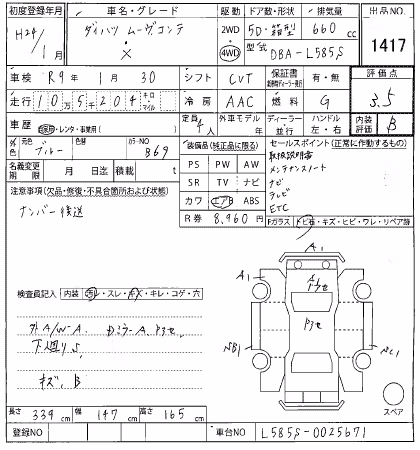 初度登録年月 車名・グレード 駆動 ドア数・形状 排気量 出品NO.
H24/1月 ダイハツ ムーヴコンテ X 2WD 4WD 5D・箱型 660cc 1417
型式 DBA-L585S
車検 R9年1月30 シフト CVT 保証書 有・無 評価点
走行 10万5千204キロ・マイル 冷房 AAC 燃料 G 3.5
車歴 自家用・レンタ・事業用( ) 定員 4人 外車モデル 年 ディーラー・並行 ハンドル 左・右 内装評価 B
外色 元色 ブルー 色替 カラーNO B69
装備品(純正品に限る)
セールスポイント(正常に作動するもの)
名義変更期限 月 日迄 積載 t
PS PW AW
SR TV ナビ
カワ エアB ABS
取扱説明書
メンテナンスノート
ナビ
テレビ
ETC
注意事項(欠品・修復・不具合箇所および状態)
ナンバー後送
R券 8,960円
Fガラス(トビ石・キズ・ヒビ・ワレ・リペア跡)
A1
A1
A1
ドアセ
NB1
NC1
検査員記入 内装 汚レ・スレ・キズ・キレ・コゲ・穴
外A/W-A.
下廻りS
キズ、B
スペア
長さ 339cm 幅 147cm 高さ 165cm
登録NO 車台NO L585S-0025671